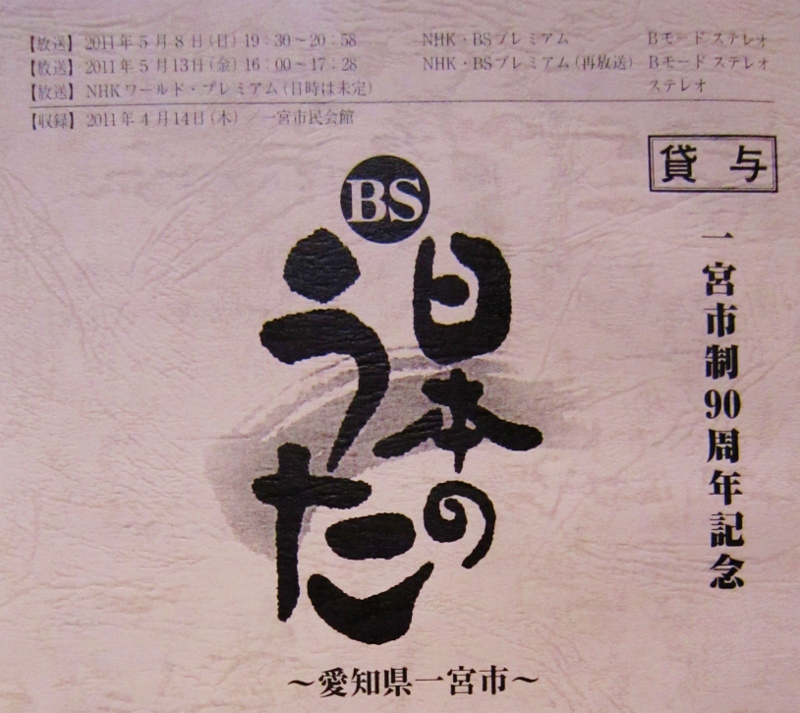 【放送】 2011年5月8日(日)19：30～20：58 NHK・BSプレミアム Bモード ステレオ
【放送】 2011年5月13日(金)16：00～17：28 NHK・BSプレミアム(再放送) Bモード ステレオ
【放送】 NHKワールド・プレミアム(日時は未定) ステレオ
【収録】 2011年4月14日(木)／一宮市民会館
貸与
一宮市制90周年記念
BS
日本の
うた
～愛知県一宮市～